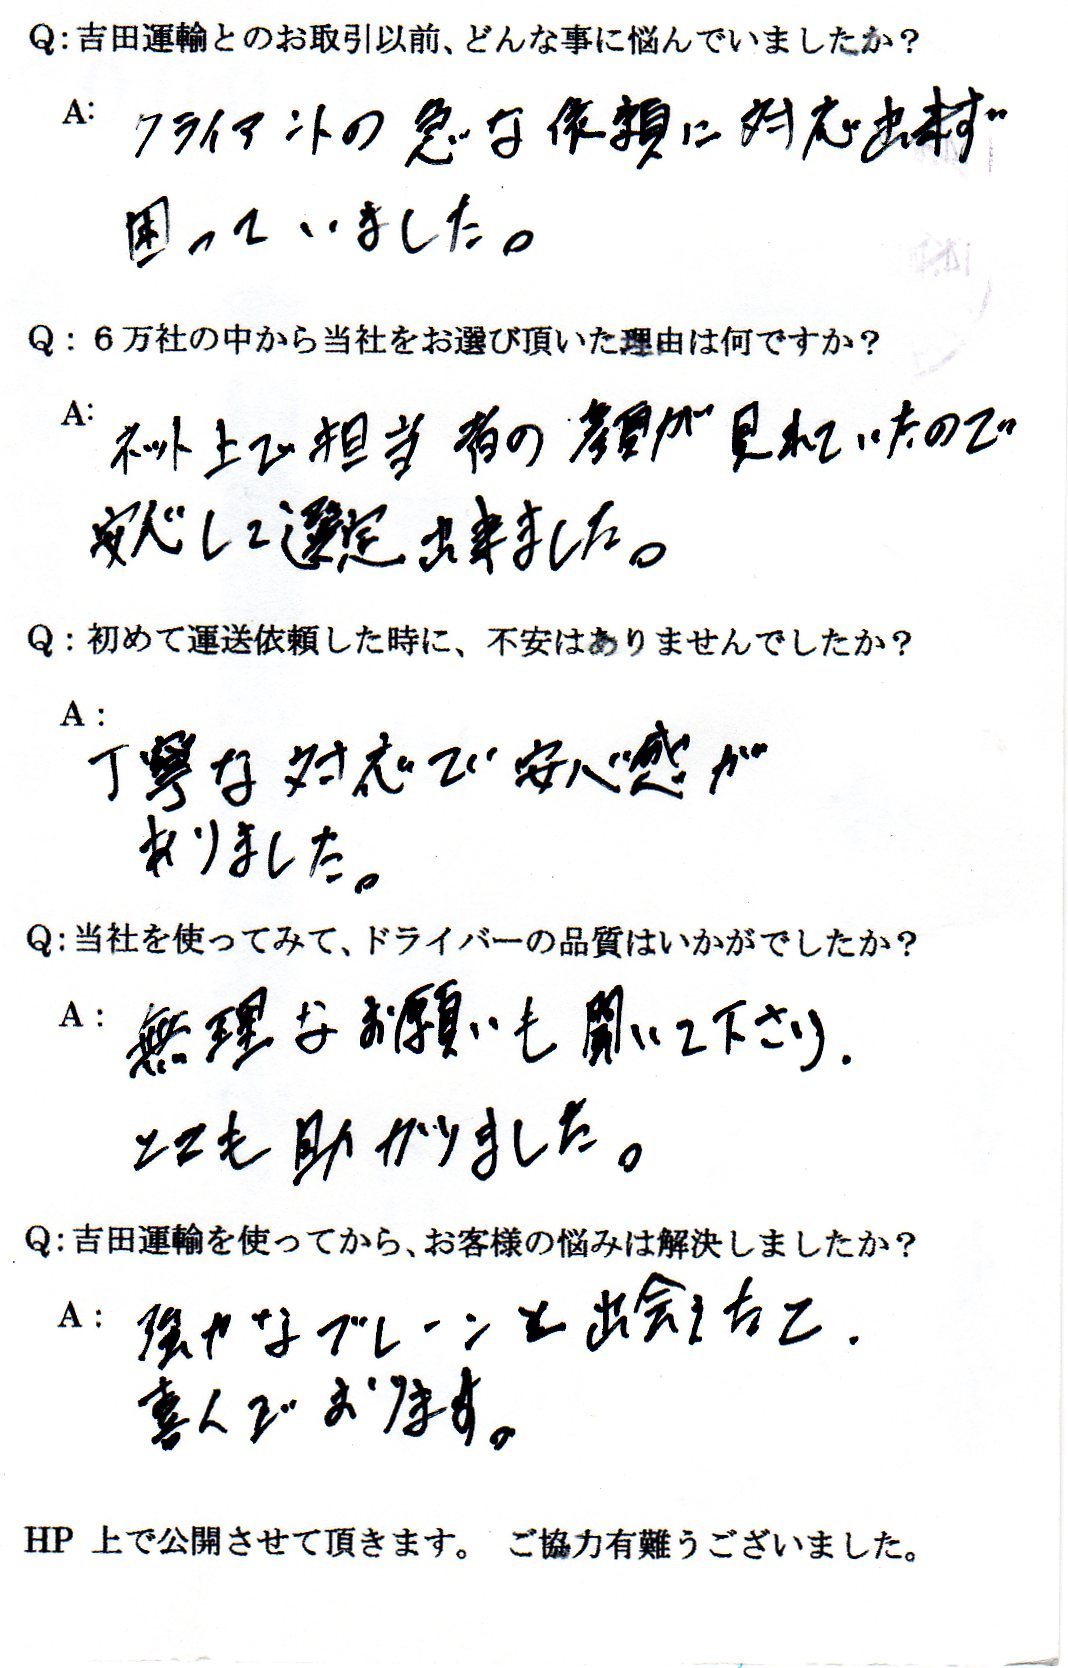 Q:吉田運輸とのお取引以前、どんな事に悩んでいましたか？
A: クライアントの急な依頼に対応出来ず
困っていました。
Q：６万社の中から当社をお選び頂いた理由は何ですか？
A: ネット上で担当者の顔が見れていたので
安心して選定出来ました。
Q：初めて運送依頼した時に、不安はありませんでしたか？
A：
丁寧な対応で安心感が
ありました。
Q:当社を使ってみて、ドライバーの品質はいかがでしたか？
A：無理なお願いも聞いて下さり、
とても助かりました。
Q:吉田運輸を使ってから、お客様の悩みは解決しましたか？
A：強力なブレーンと出会えたと、
喜んでおります。
HP 上で公開させて頂きます。 ご協力有難うございました。